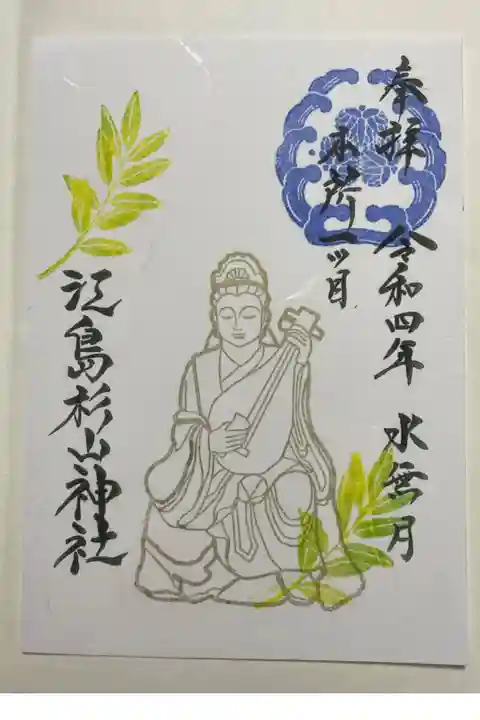 奉拝 令和四年 水無月
本所一ツ目
江島杉山神社